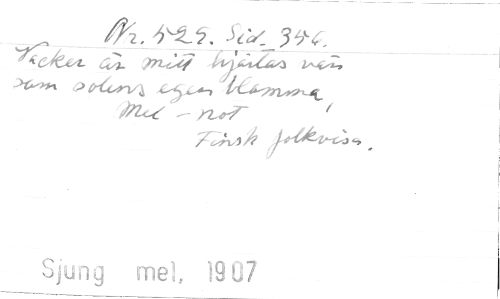 Nr. 529. Sid. 356.
Vacker är mitt hjärtas vän
som solens egen blomma,
Mel - not
Finsk folkvisa.
Sjung mel, 1907